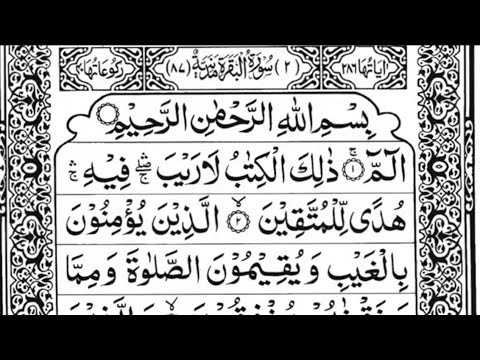 اٰیاتُهَا ٢٨٦ (٢) سُوْرَةُ الْبَقَرَةِ مَدَنِیَّةٌ (٨٧) رُکُوْعَاتُهَا
بِسْمِ اللّٰهِ الرَّحْمٰنِ الرَّحِیْمِ
الٓمّٓ ۚ﴿١﴾ ذٰلِكَ الْكِتٰبُ لَا رَیْبَ ۛۖۚ فِیْهِ ۛۚ
هُدًی لِّلْمُتَّقِیْنَ ۙ﴿٢﴾ الَّذِیْنَ یُؤْمِنُوْنَ
بِالْغَیْبِ وَ یُقِیْمُوْنَ الصَّلٰوةَ وَ مِمَّا